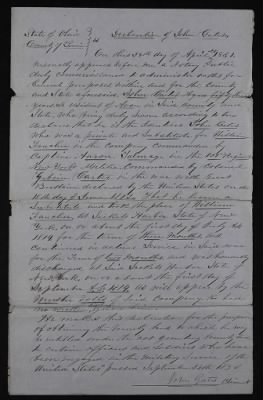 State of Ohio } Declaration of John Gates
County of Lorain } ss
On this day of April 1851
personally appeared before me a Notary Public
duly commissioned to administer oaths for
General purposes within and for the County
and State aforesaid John Gates Aged fifty
years a resident of Avon in said County and
State, who being duly sworn according to law
declares that he is the same John Gates
who was a private and Substitute for William
Fancher in the company commanded by
Captain Aaron in the Regiment
New York Militia Commanded by
Carter in the war with Great
Britain declared by the United States on the
18th day of June 1812
William
Fancher at Sacketts Harbor State of New
York on or about the first day of July AD
1814 for the term of three months and
continued in actual Service in said war
for the term of two months and was honorably
discharged at Sacketts Harbor State of
New York on or about the first day of
September AD 1814 as will appear by the
Muster rolls of said Company he has
no written
He makes this declaration for the purpose
of obtaining the bounty land to which he may
be entitled under the act granting bounty land
to certain officers and soldiers who have
been engaged in the military Service of the
United States passed September 28th 1850
John Gates